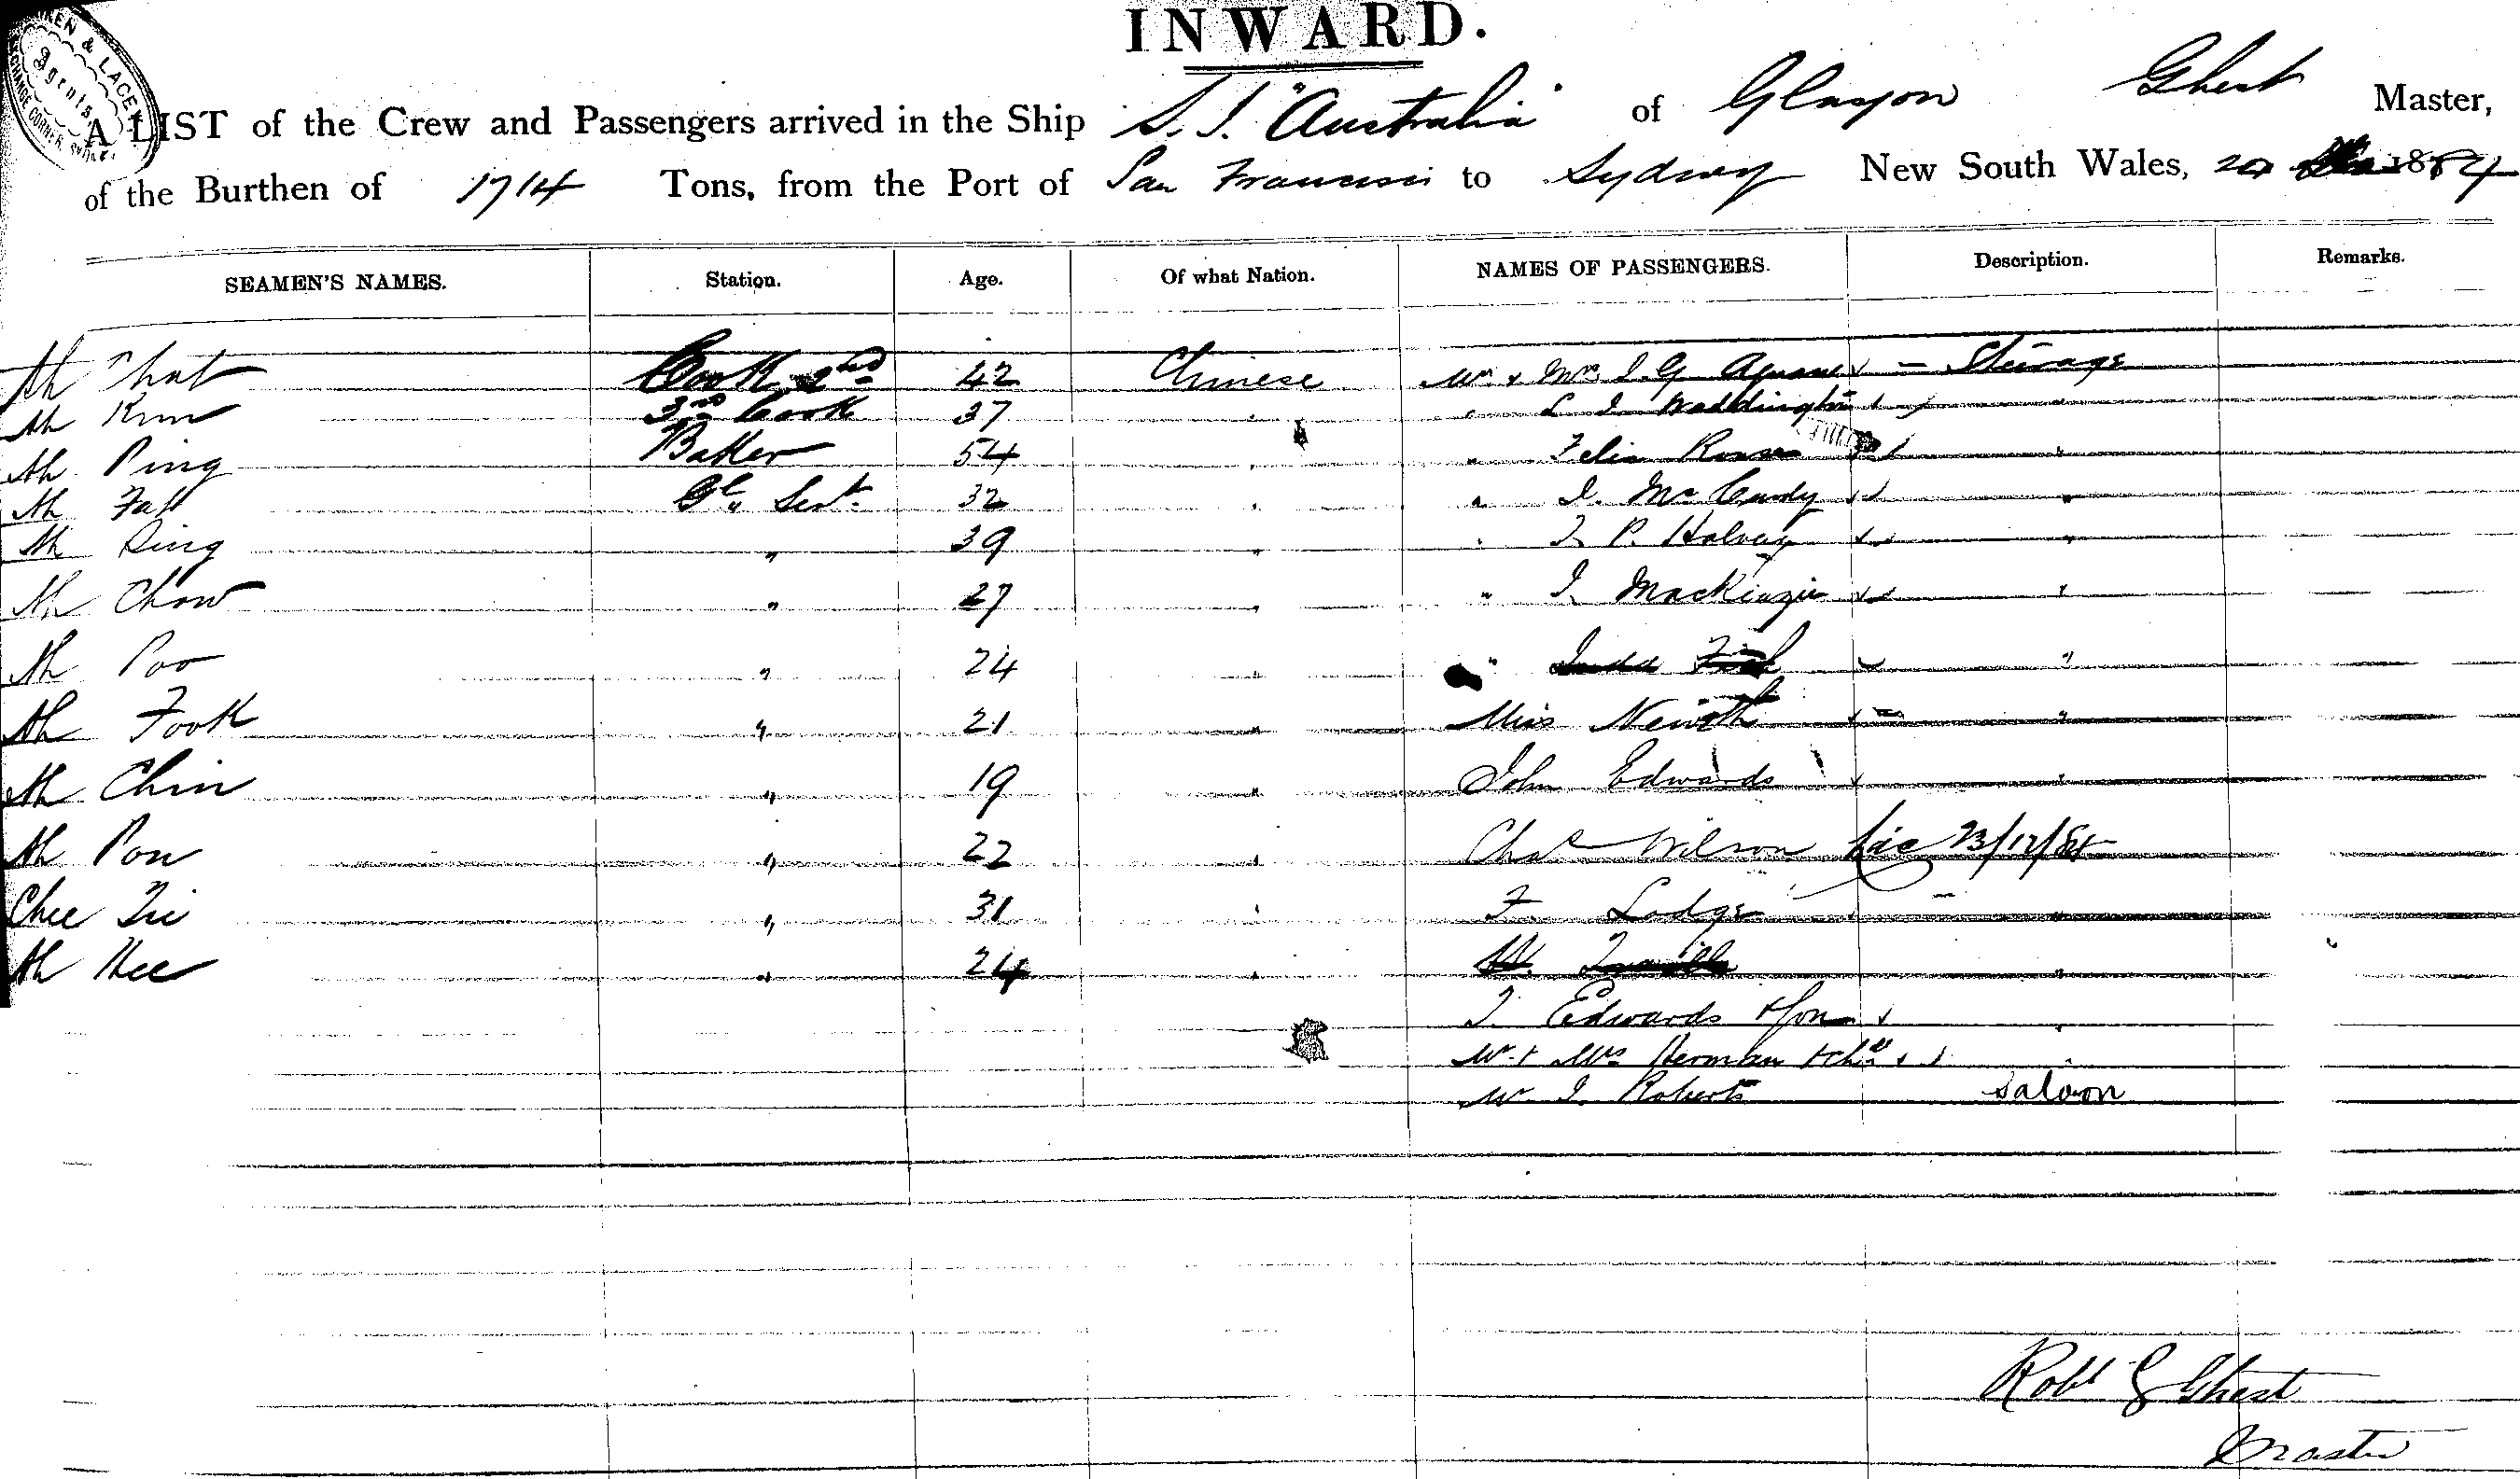 INWARD.
Agents
A LIST of the Crew and Passengers arrived in the Ship S.S. "Australia" of Glasgow Ghest Master,
of the Burthen of 1714 Tons, from the Port of San Francisco to Sydney New South Wales, 1884
SEAMEN'S NAMES. Station. Age. Of what Nation. NAMES OF PASSENGERS. Description. Remarks.
Ah Chat Cook 2nd 42 Chinese Mr & Mrs Steerage
Ah Kim 3rd Cook 37 " " Waddington "
Ah Ping Baker 54 " Felix "
Ah Fat Gl. Sert. 32 " " J. Mc Curdy "
Ah Ding " 39 " " J. P. Halvey "
Ah Chow " 27 " " J. MacKinzie "
Ah Poo " 24 " " "
Ah Fook " 21 " Miss "
Ah Chin " 19 " John Edwards "
Ah Pon " 22 " Chas Wilson 23/12/84
Chee " 31 " F. Lodge "
Ah Hee " 24 " "
J. Edwards & Son "
Mr & Mrs Herman & chd "
Mr J. Roberts Saloon
Robt Ghest
Master